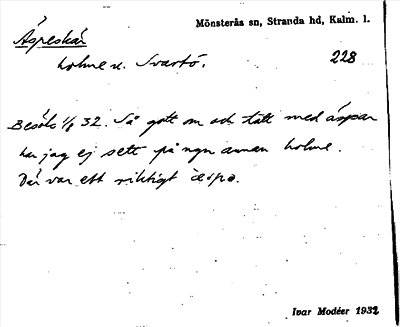 Mönsterås sn, Stranda hd, Kalm. l.
Äspeskär
holme v. Svartö.
228
Besökt 1/8 32. Så gott om och tätt med äspar
har jag ej sett på ngn annan holme.
Där var ett riktigt
Ivar Modéer 1932